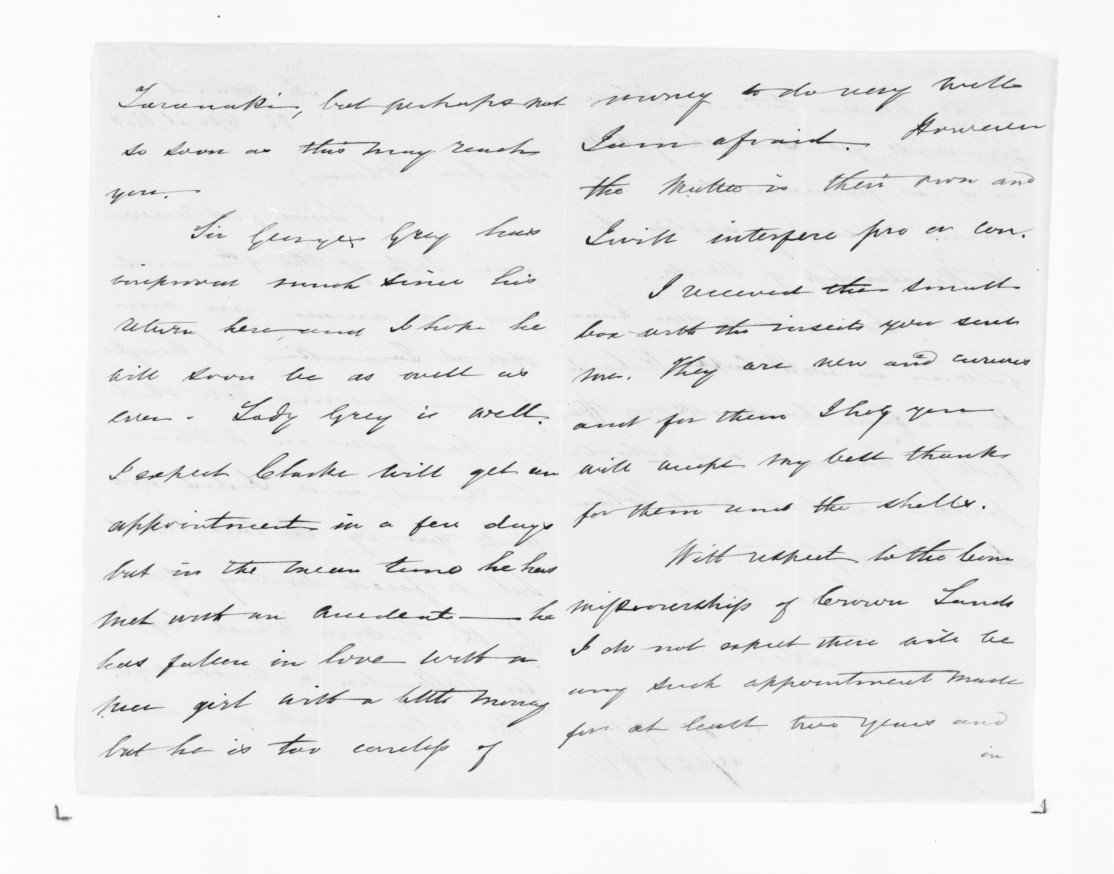 Taranaki, but perhaps not
so soon as this may reach
you.
Sir George Grey has
improved much since his
return here and I hope he
will soon be as well as
ever. Lady Grey is well.
I expect Clarke will get an
appointment in a few days
but in the mean time he has
met with an accident — he
has fallen in love with a
nice girl with a little money
but he is too careless of
money to do very well
I am afraid. However
the matter is their own and
I will interfere pro or con.
I received the small
box with the insects you sent
me. They are new and curious
and for them I beg you
will accept my best thanks
for them and the shells.
With respect to the Com
missionership of Crown Lands
I do not expect there will be
any such appointment made
for at least two years and
in